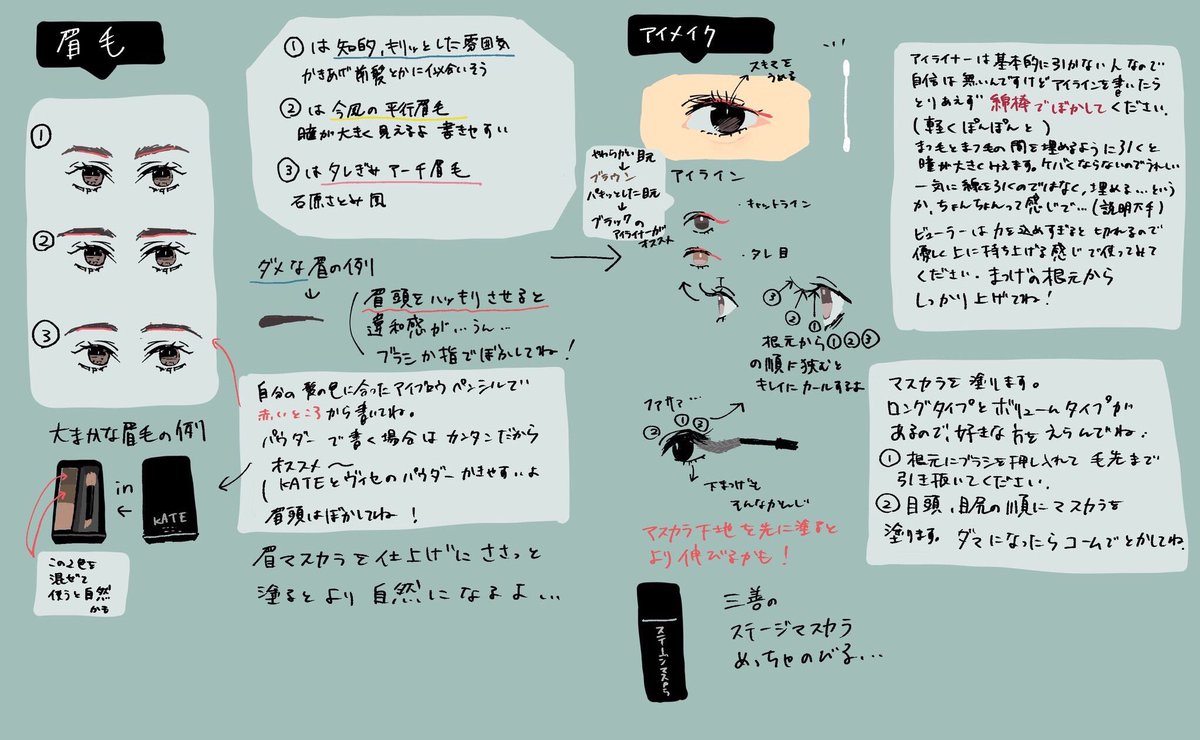 眉毛
①
②
③
大まかな眉毛の例
①は 知的、キリッとした雰囲気
かきあげ前髪とかに似合いそう
②は 今風の平行眉毛
瞳が大きく見えるよ 書きやすい
③は タレぎみアーチ眉毛
石原さとみ風
ダメな眉の例り
↓
眉頭をハッキリさせると
違和感が…うん…
ブラシか指でぼかしてね!
自分の髪の色に合ったアイブロウペンシルで
赤いところから書いてね。
パウダーで書く場合はカンタンだから
オススメ〜
KATEとヴィセのパウダーかきやすいよ
眉頭はぼかしてね!
in
←
KATE
この2色を
混ぜて
使うと自然
かも
眉マスカラを仕上げにささっと
塗るとより自然になるよ…
アイメイク
スキマを
うめる
やわらかい目元
↓
ブラウン
パキッとした目元
↓
ブラックの
アイライナーが
オススメ
アイライン
・キャットライン
・タレ目
③
②
①
根元から①②③
の順に挟むと
キレイにカールするよ
ファサ…
②
①
③
下まつげも
そんなかんじ
マスカラ下地を先に塗ると
より伸びるかも!
ステージマスカラ
三善の
ステージマスカラ
めっちゃのびる…
アイライナーは基本的に引かない人なので
自信は無いんですけどアイラインを書いたら
とりあえず 綿棒でぼかしてください。
(軽くぽんぽんと)
まつ毛とまつ毛の間を埋めるように引くと
瞳が大きくみえます。ケバくならないのでうれしい
一気に線を引くのではなく、埋める…という
か、ちょんちょんって感じで…(説明下手)
ビューラーは力を込めすぎると切れるので
優しく上に持ち上げる感じで使ってみて
ください。まつげの根元から
しっかり上げてね!
マスカラを塗ります。
ロングタイプとボリュームタイプが
あるので、好きな方をえらんでね。
① 根元にブラシを押し入れて毛先まで
引き抜いてください。
② 目頭、目尻の順にマスカラを
塗ります。ダマになったらコームでとかしてね.